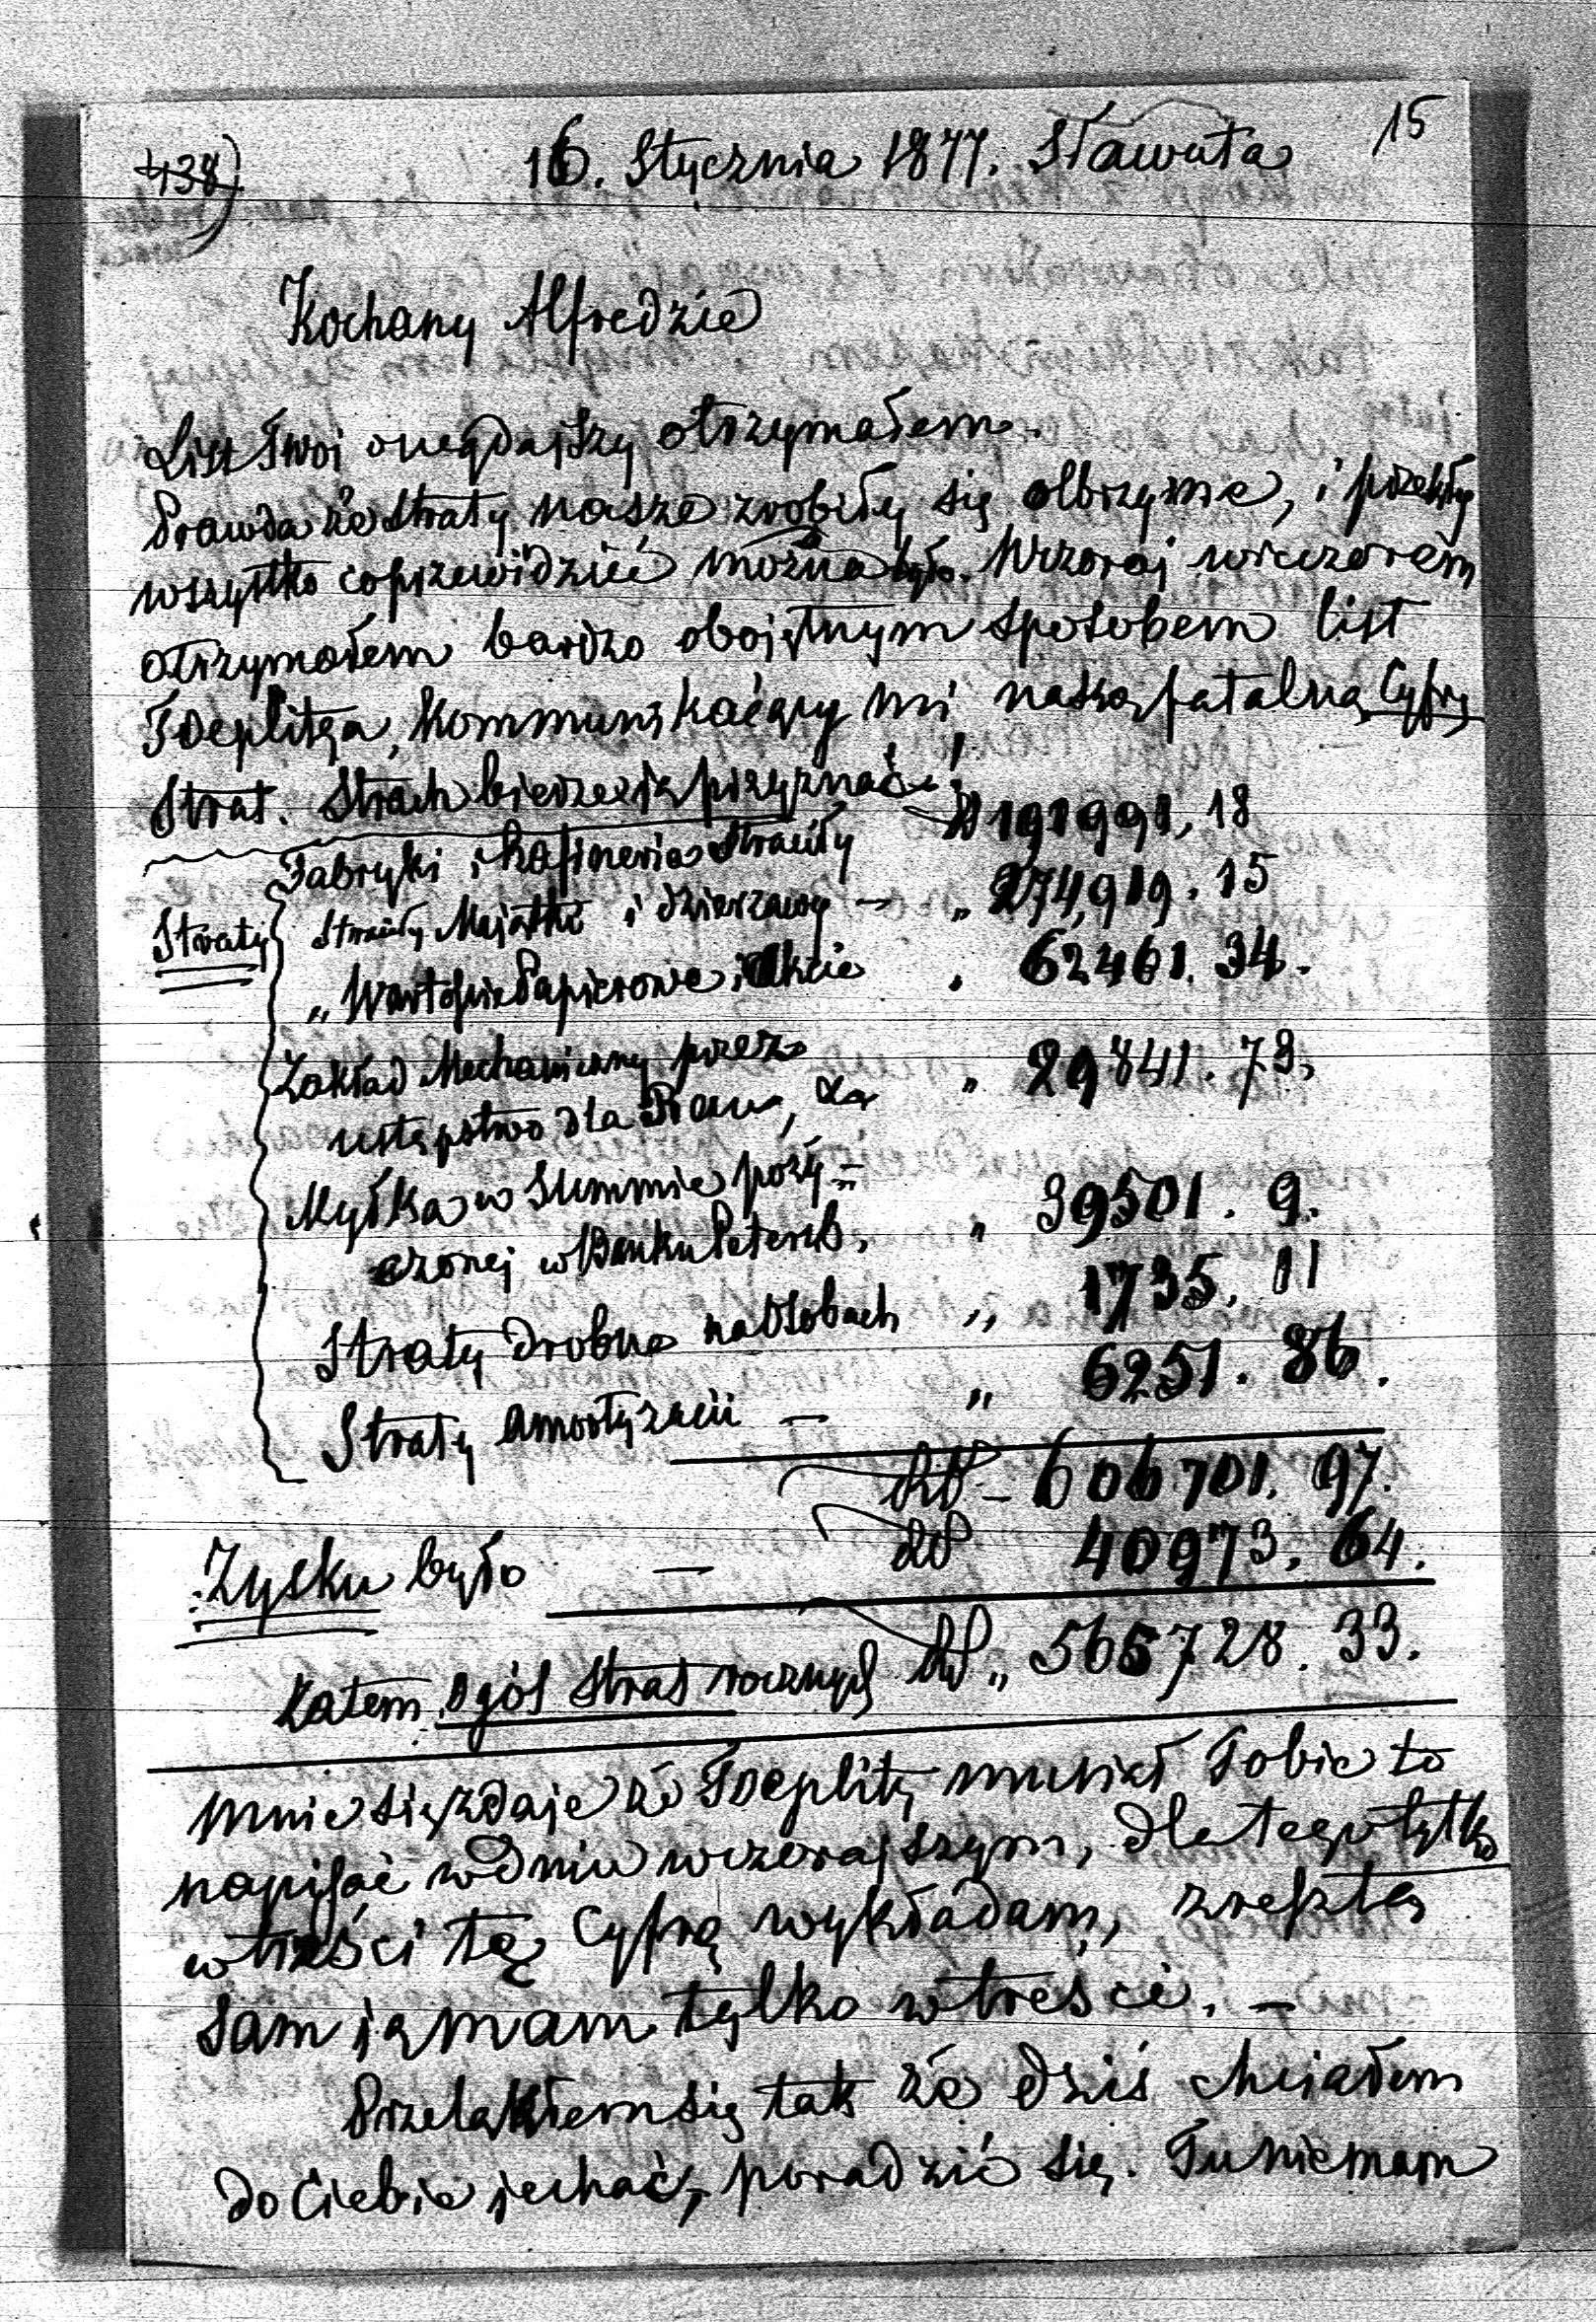 15
438)
16. Stycznia 1877. Sławuta
Kochany Alfredzie
List Twoi onegdajszy otrzymałem.
Prawda że Straty nasze zrobiły się olbrzyme, i przeszły
wszystko co przewidzieć można było. Wczoraj wieczorem
otrzymałem bardzo obojętnym sposobem list
Toeplitza, kommunikaćący mi naszą fatalną Cyfrę
Strat. Strach bierze się przyznać!
Fabryki i Rafineria Straciły — 191991, 18
Straty { Straciły Majątki i dzierzawy — „ 274,919. 15
„ Wartoście Papierowe i Akcie „ 62461. 34.
Zakład Mechaniczny przez
ustępstwo dla Braci, „ 29841. 73,
Myłka w Summie pozy=
czonej w Banku Petersb, „ 39501. 9.
Straty drobne na Osobach „ 1735, 11
Straty amortyzacii — „ 6251. 86.
606701. 97.
Zysku było — 40973. 64.
Zatem ogół Strat rocznych „ 565728. 33.
Mnie się zdaje że Toeplitz musiał Tobie to
napisać w dniu wczorajszym, dla tego tylko
w treści tę Cyfrę wykładam, zresztą
Sam ją mam tylko w treści. —
Przeląkłem się tak że dziś chciałem
do Ciebie jechać, poradzić się. Tu niemam